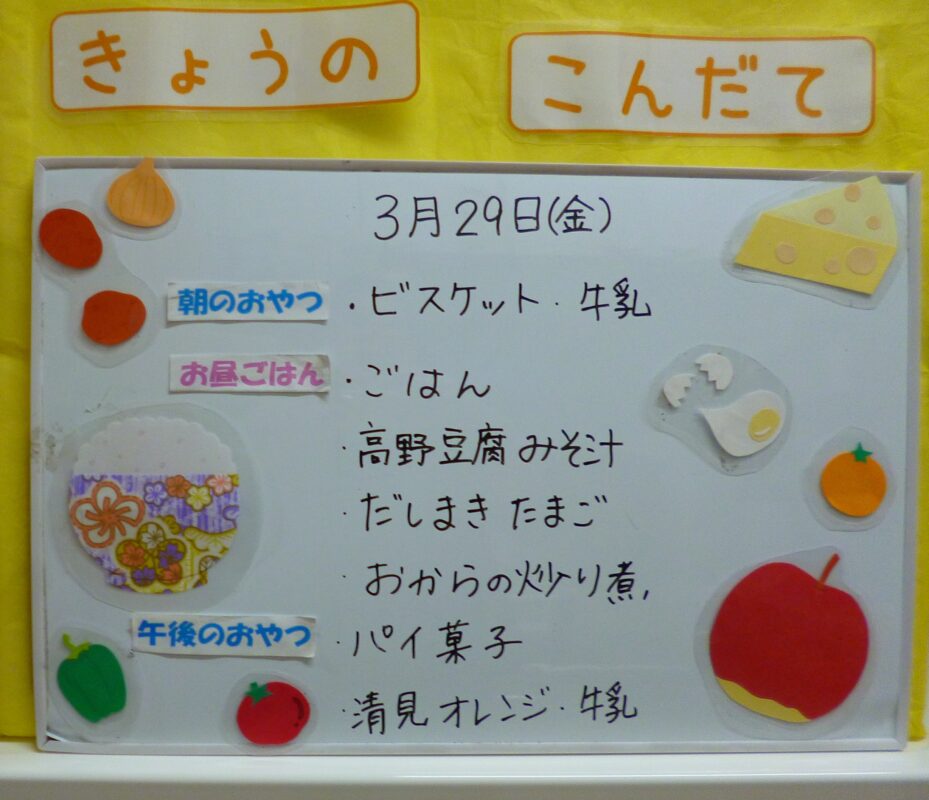 きょうの こんだて
3月29日(金)
朝のおやつ ・ビスケット・牛乳
お昼ごはん ・ごはん
・高野豆腐みそ汁
・だしまきたまご
・おからの炒り煮
午後のおやつ ・パイ菓子
・清見オレンジ・牛乳